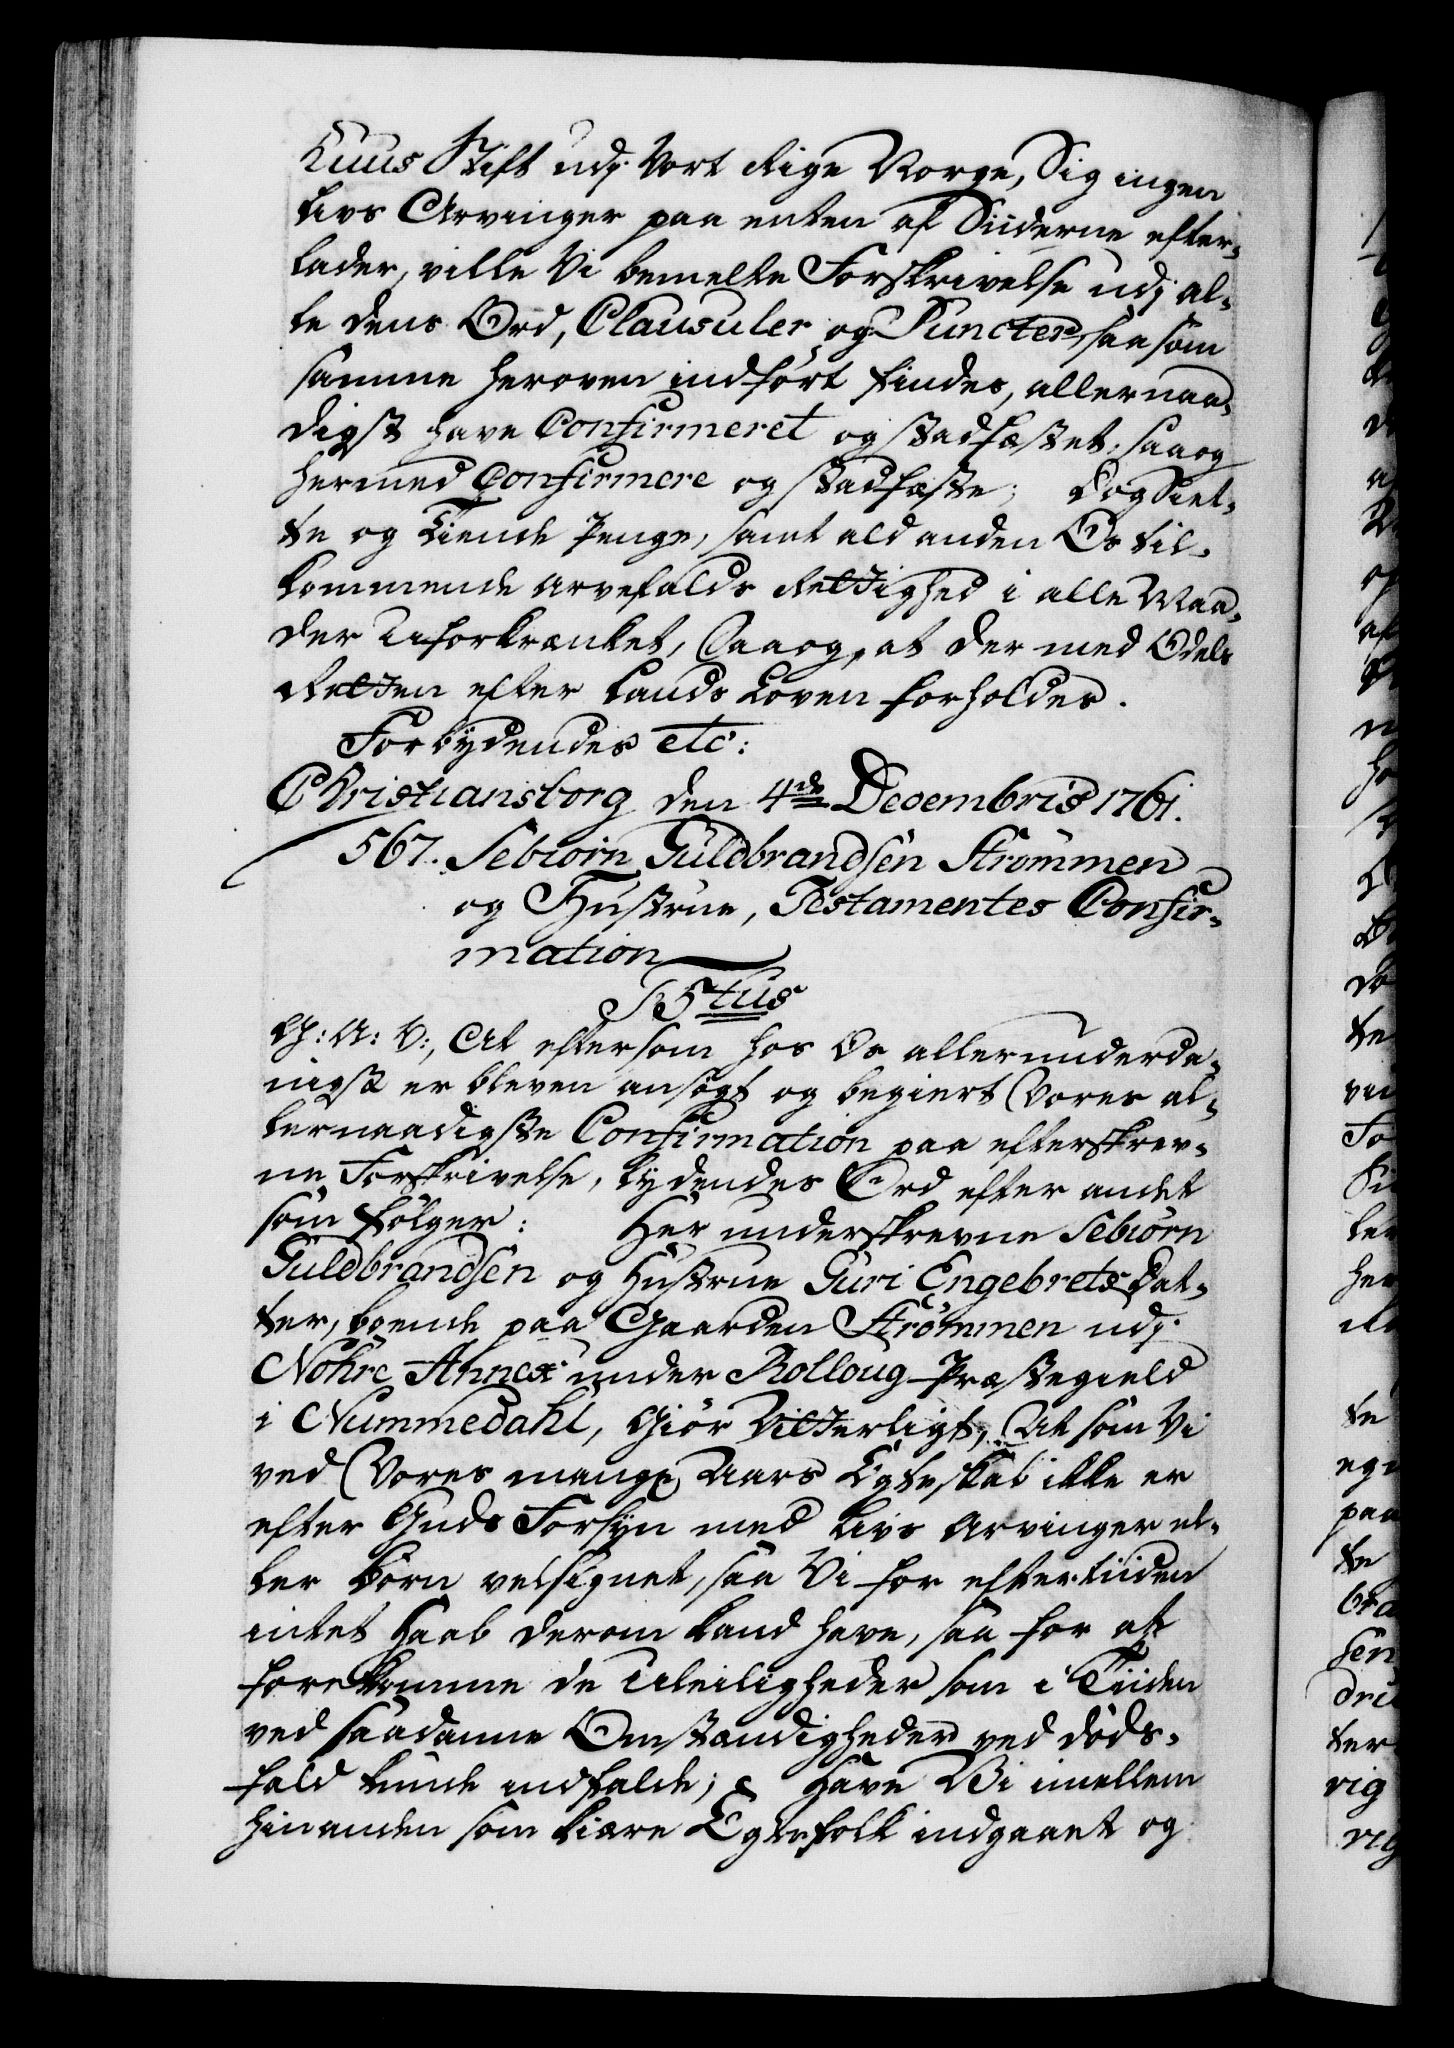 huus Stift udj Vort Rige Norge, Sig ingen
Livs Arvinger paa enten af Siiderne efter-
lader, ville Vi bemelte Forskrivelse udj al-
le dens Ord, Clausuler og Puncter, saasom
samme heroven indført findes, allernaa-
digst have Confirmeret og stadfæstet, saa og
hermed Confirmere og stadfæste; Dog Siet-
te og Tiende Penge, samt ald anden Os til-
kommende Arvefalds Rettighed i alle Maa-
der Uforkrænket, Saa og, at der med Odels
Retten efter Lands Loven forholdes.
Forbydendes etc:
Christiansborg den 4de Decembris 1761.
567. Sebiørn Guldbrandsen Strømmen
og Hustrue, Testamentes Confir-
mation
F 5tus
G: A: V:, At eftersom hos Os allerunderda-
nigst er bleven ansøgt og begiert Vores al-
lernaadigste Confirmation paa efterskrev-
ne Forskrivelse, lydendes Ord efter andet
som følger: Her underskrevne Sebiørn
Guldbrandsen og Hustrue Guri Engebrets Dat-
ter, boende paa Gaarden Strømmen udj
Nohre Annex under Rolloug Præstegield
i Nummedahl, Giør Vitterligt, At som Vi
ved Vores mange Aars Egteskab ikke er
efter Guds Forsyn med Livs Arvinger el-
ler Børn velsignet, saa Vi for eftertiiden
intet Haab derom kand have, saa for at
forekomme de Uleiligheder som i Tiiden
ved saadanne Omstændigheder ved døds-
fald kunde indfalde; Have Vi imellem
hinanden som kiære Egtefolk indgaaet og